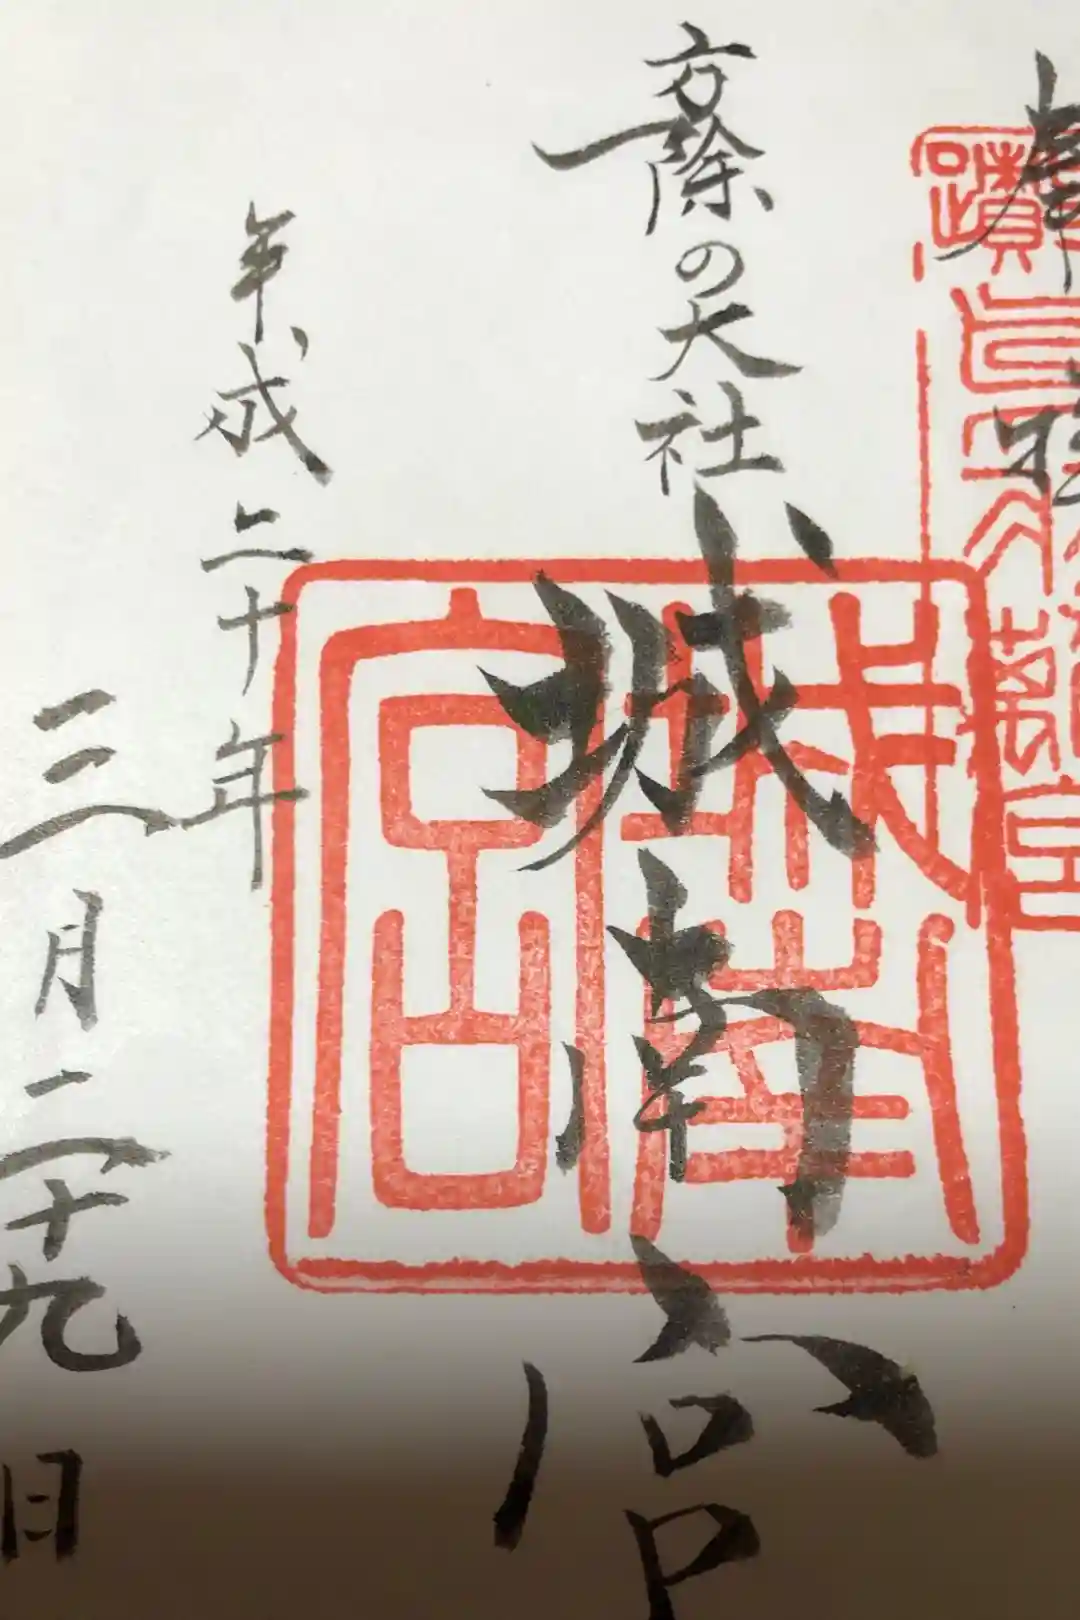 奉拝
方除の大社
城南宮
城南宮
平成二十年
三月二十九日